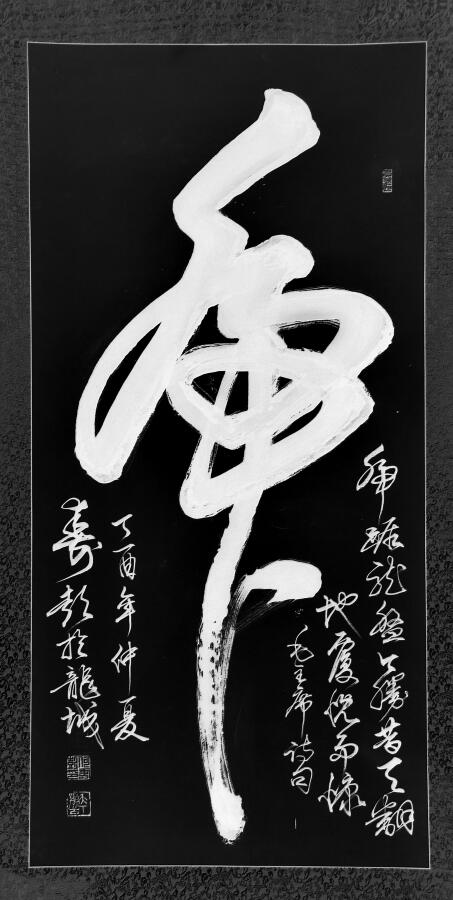 虎
虎踞龙盘今勝昔天翻
地覆慨而慷
毛主席诗句
丁酉年仲夏
寿彭於龍城